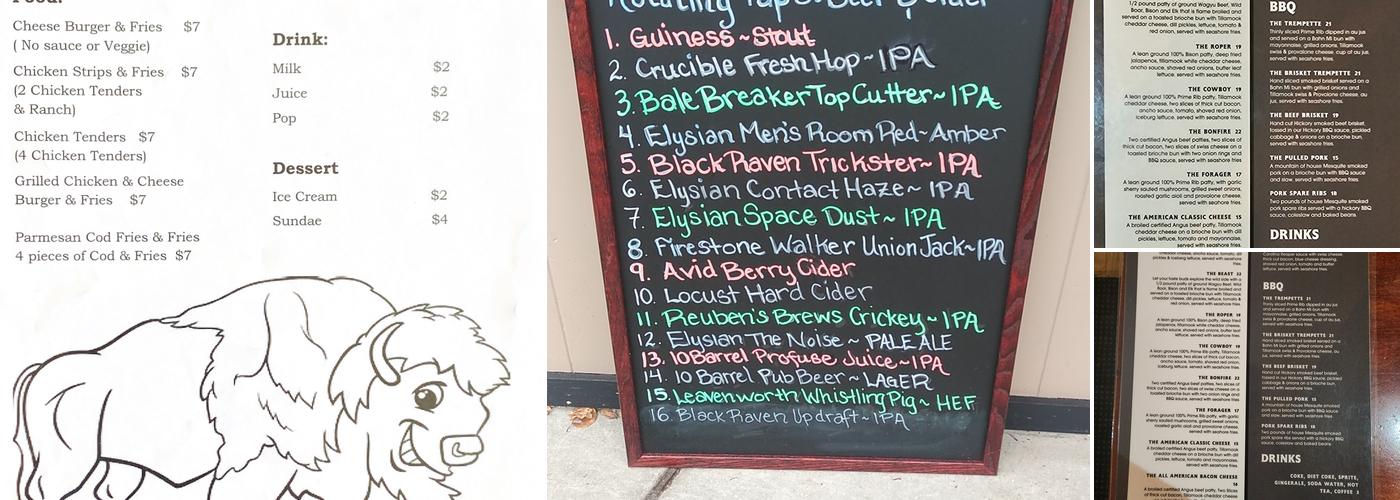 Food:
Cheese Burger & Fries $7
( No sauce or Veggie)
Chicken Strips & Fries $7
(2 Chicken Tenders
& Ranch)
Chicken Tenders $7
(4 Chicken Tenders)
Grilled Chicken & Cheese
Burger & Fries $7
Parmesan Cod Fries & Fries
4 pieces of Cod & Fries $7
Drink:
Milk $2
Juice $2
Pop $2
Dessert
Ice Cream $2
Sundae $4
Rotating Taps
1. Guiness ~ Stout
2. Crucible Fresh Hop ~ IPA
3. Bale Breaker Top Cutter ~ IPA
4. Elysian Men's Room Red ~ Amber
5. Black Raven Trickster ~ IPA
6. Elysian Contact Haze ~ IPA
7. Elysian Space Dust ~ IPA
8. Firestone Walker Union Jack ~ IPA
9. Avid Berry Cider
10. Locust Hard Cider
11. Reuben's Brews Crickey ~ IPA
12. Elysian The Noise ~ PALE ALE
13. 10 Barrel Profuse Juice ~ IPA
14. 10 Barrel Pub Beer ~ LAGER
15. Leavenworth Whistling Pig ~ HEF
16. Black Raven Updraft ~ IPA
1/2 pound patty of ground Wagyu Beef, Wild
Boar, Bison and Elk that is flame broiled and
served on a toasted brioche bun with Tillamook
cheddar cheese, dill pickles, lettuce, tomato &
red onion, served with seashore fries.
THE ROPER 19
A lean ground 100% Bison patty, deep fried
jalapenos, tillamook white cheddar cheese,
ancho sauce, shaved red onions, butter leaf
lettuce, served with seashore fries.
THE COWBOY 19
A lean ground 100% Prime Rib patty, Tillamook
cheddar cheese, two slices of thick cut bacon,
ancho sauce, tomato, shaved red onion,
iceburg lettuce, served with seashore fries.
THE BONFIRE 22
Two certified Angus beef patties, two slices of
thick cut bacon, two slices of swiss cheese on a
toasted brioche bun with two onion rings and
BBQ sauce, served with seashore fries
THE FORAGER 17
A lean ground 100% Prime Rib patty, with garlic
sherry sauteed mushrooms, grilled sweet onions,
roasted garlic aioli and provolone cheese,
served with seashore fries.
THE AMERICAN CLASSIC CHEESE 15
A broiled certified Angus beef patty, Tillamook
cheddar cheese on a brioche bun with dill
pickles, lettuce, tomato and mayonnaise,
BBQ
THE TREMPETTE 21
Thinly sliced Prime Rib dipped in au jus
and served on a Bahn Mi bun with
mayonnaise, grilled onions, Tillamook
swiss & provolone cheese, cup of au jus,
served with seashore fries.
THE BRISKET TREMPETTE 21
Hand sliced smoked brisket served on a
Bahn Mi bun with grilled onions and
Tillamook swiss & Provolone cheese, au
jus, served with seashore fries.
THE BEEF BRISKET 19
Hand cut Hickory smoked beef brisket,
tossed in our Hickory BBQ sauce, pickled
cabbage & onions on a brioche bun,
served with seashore fries.
THE PULLED PORK 15
A mountain of house Mesquite smoked
pork on a brioche bun with BBQ sauce
and slaw, served with seashore fries.
PORK SPARE RIBS 18
Two pounds of house Mesquite smoked
pork spare ribs served with a hickory BBQ
sauce, coleslaw and baked beans.
DRINKS
THE BEAST 22
Let your taste buds explore the wild side with a
1/2 pound patty of ground Wagyu Beef, Wild
Boar, Bison and Elk that is flame broiled and
served on a toasted brioche bun with Tillamook
cheddar cheese, dill pickles, lettuce, tomato &
red onion, served with seashore fries.
THE ROPER 19
A lean ground 100% Bison patty, deep fried
jalapenos, tillamook white cheddar cheese,
ancho sauce, shaved red onions, butter leaf
lettuce, served with seashore fries.
THE COWBOY 19
A lean ground 100% Prime Rib patty, Tillamook
cheddar cheese, two slices of thick cut bacon,
ancho sauce, tomato, shaved red onion,
iceburg lettuce, served with seashore fries.
THE BONFIRE 22
Two certified Angus beef patties, two slices of
thick cut bacon, two slices of swiss cheese on a
toasted brioche bun with two onion rings and
BBQ sauce, served with seashore fries
THE FORAGER 17
A lean ground 100% Prime Rib patty, with garlic
sherry sauteed mushrooms, grilled sweet onions,
roasted garlic aioli and provolone cheese,
served with seashore fries.
THE AMERICAN CLASSIC CHEESE 15
A broiled certified Angus beef patty, Tillamook
cheddar cheese on a brioche bun with dill
pickles, lettuce, tomato and mayonnaise,
served with seashore fries.
THE ALL AMERICAN BACON CHEESE
16
A broiled certified Angus beef patty, two slices
BBQ
THE TREMPETTE 21
Thinly sliced Prime Rib dipped in au jus
and served on a Bahn Mi bun with
mayonnaise, grilled onions, Tillamook
swiss & provolone cheese, cup of au jus,
served with seashore fries.
THE BRISKET TREMPETTE 21
Hand sliced smoked brisket served on a
Bahn Mi bun with grilled onions and
Tillamook swiss & Provolone cheese, au
jus, served with seashore fries.
THE BEEF BRISKET 19
Hand cut Hickory smoked beef brisket,
tossed in our Hickory BBQ sauce, pickled
cabbage & onions on a brioche bun,
served with seashore fries.
THE PULLED PORK 15
A mountain of house Mesquite smoked
pork on a brioche bun with BBQ sauce
and slaw, served with seashore fries.
PORK SPARE RIBS 18
Two pounds of house Mesquite smoked
pork spare ribs served with a hickory BBQ
sauce, coleslaw and baked beans.
DRINKS
COKE, DIET COKE, SPRITE,
GINGERALE, SODA WATER, HOT
TEA, COFFEE 3